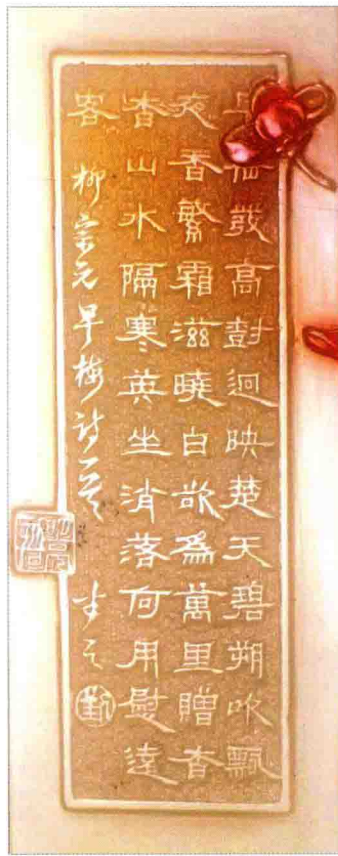 梅發高樹迥映楚天碧朔吹飄
夜香繁霜滋曉白欲爲萬里贈杳
杳山水隔寒英坐消落何用慰遠
客 柳宗元早梅詩一首